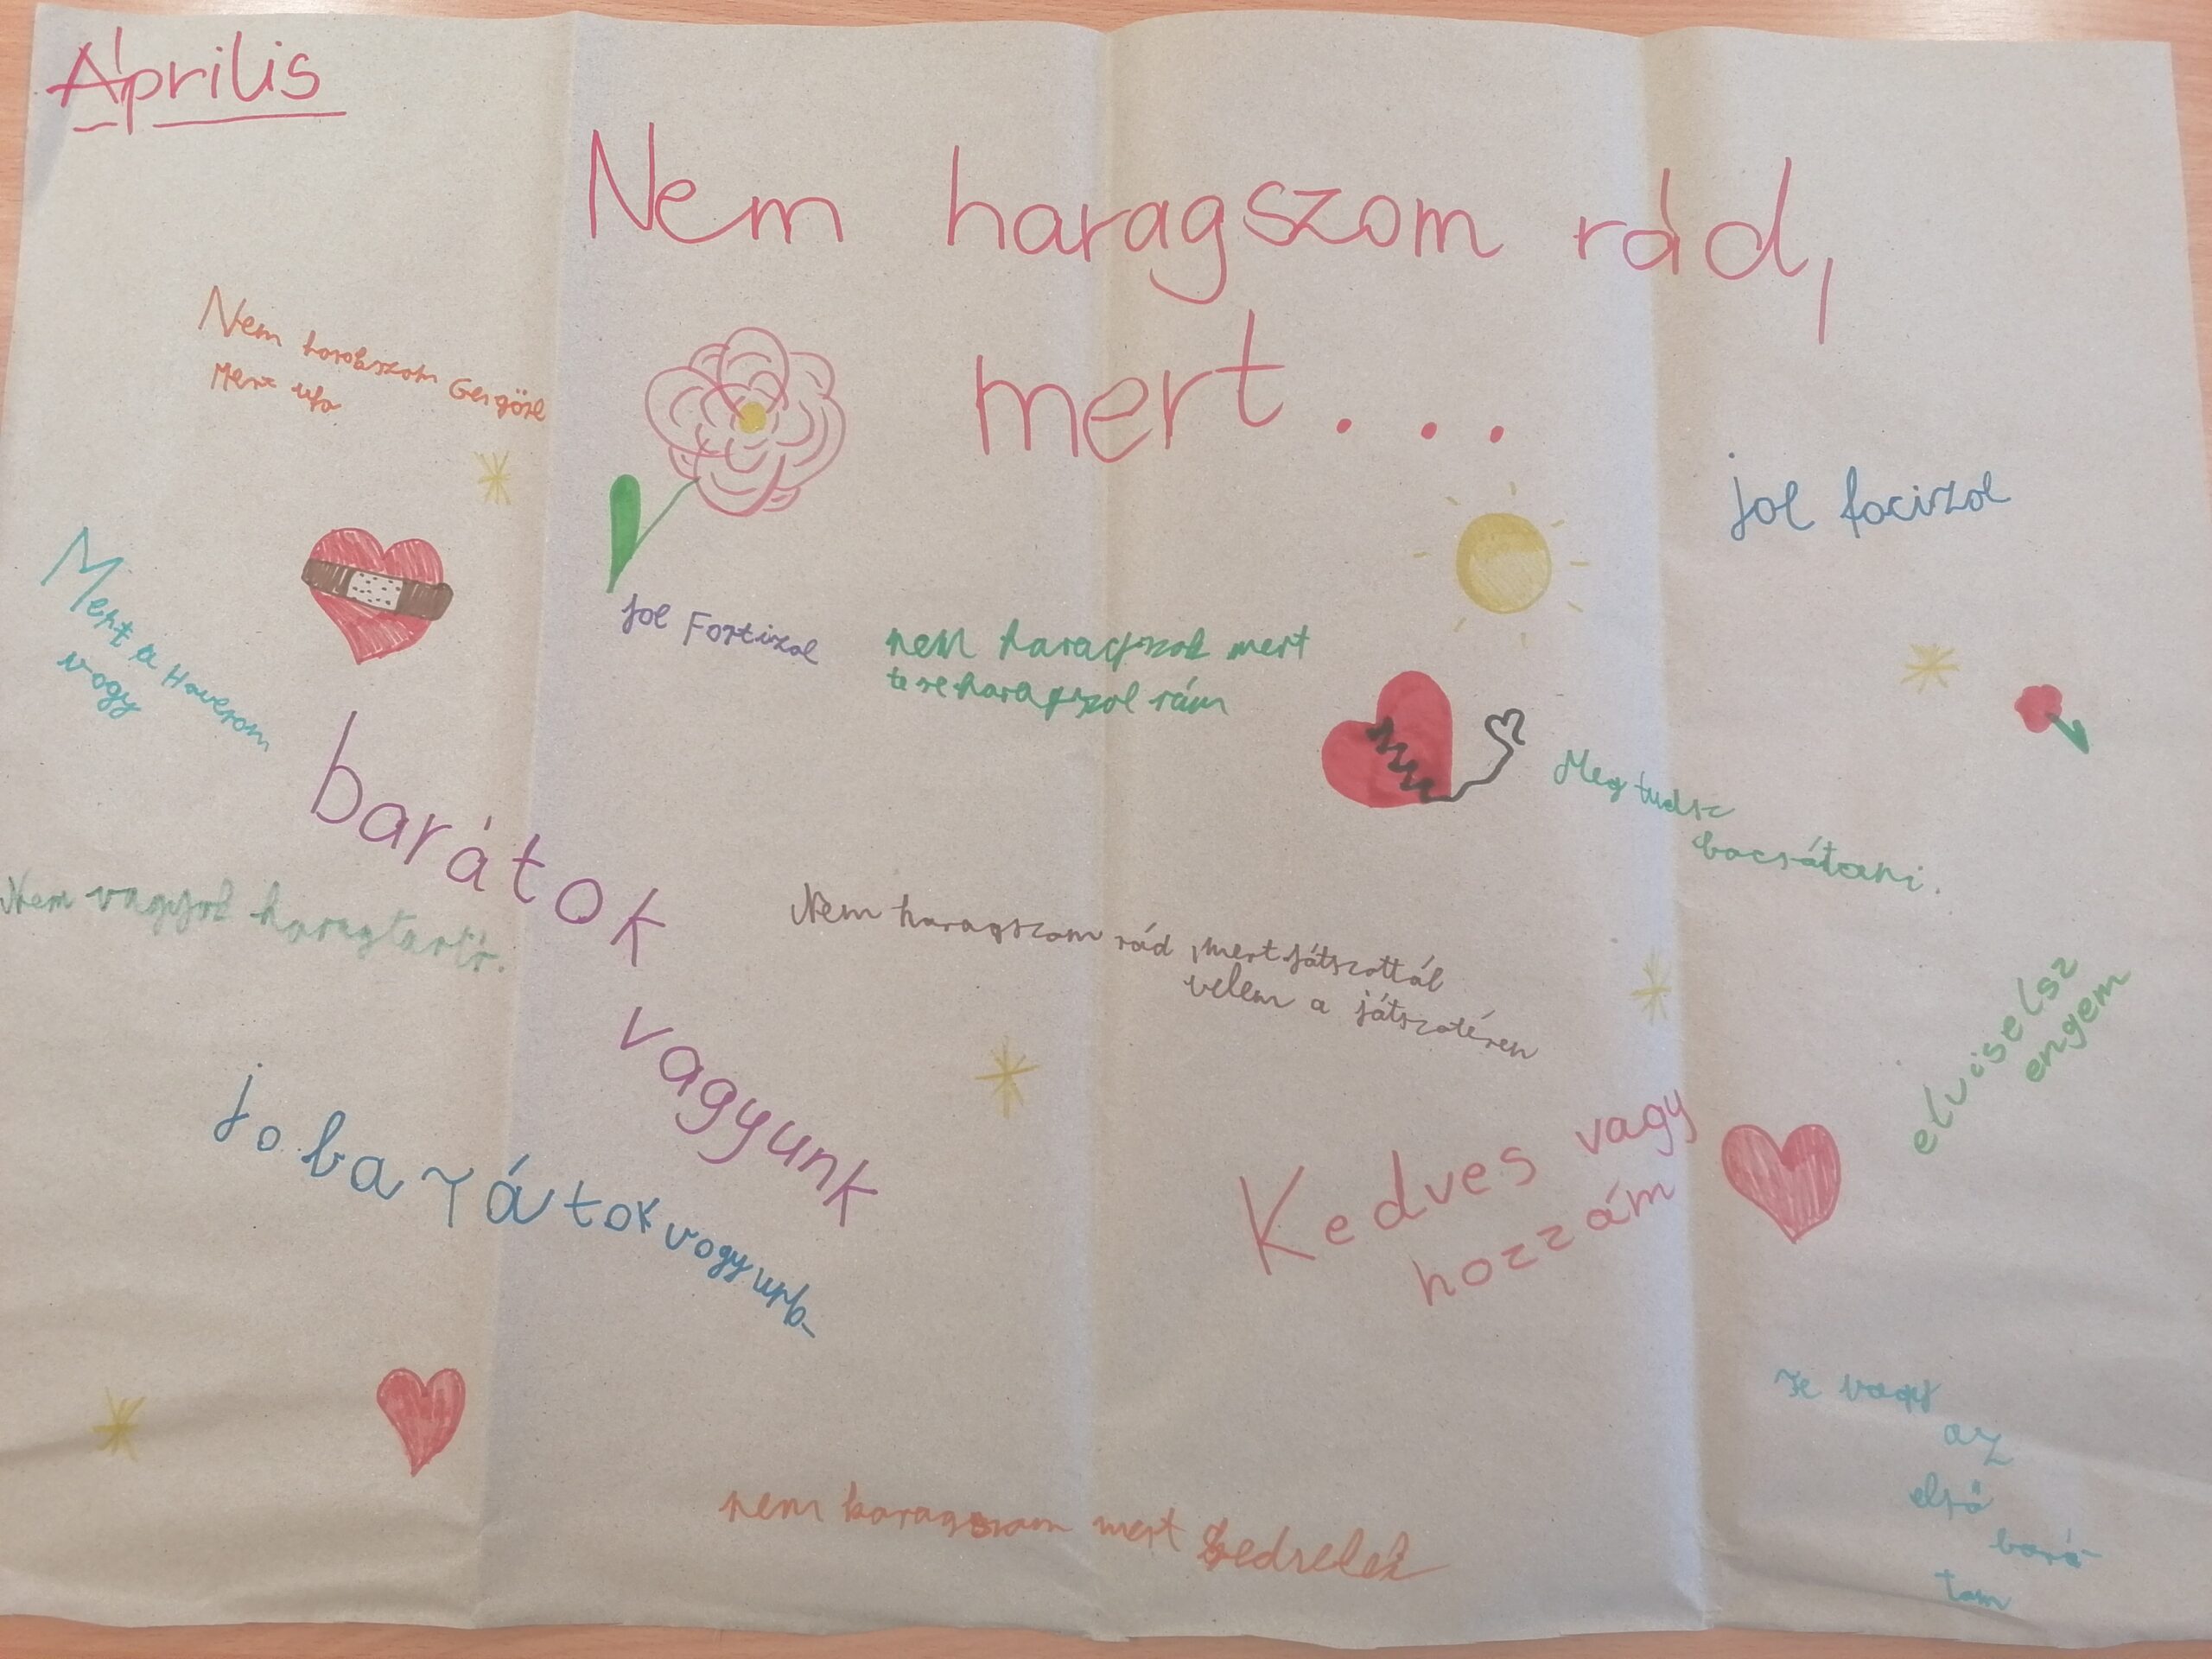 Április
Nem haragszom rád,
mert...
Nem harakszom Gergőre
Mert ufo
jol focizol
Mert a Haverom
vagy
jol Fortizol
nem haragszok mert
te se haragszol rám
Meg tudsz
bocsátani.
barátok
vagyunk
Nem vagyok haragtartó.
Nem haragszom rád, mert játszottál
velem a játszotéren
elviselsz
engem
jo barátok vagyunk
Kedves vagy
hozzám
te vagy
az
első
bará-
tom
nem haragszom mert